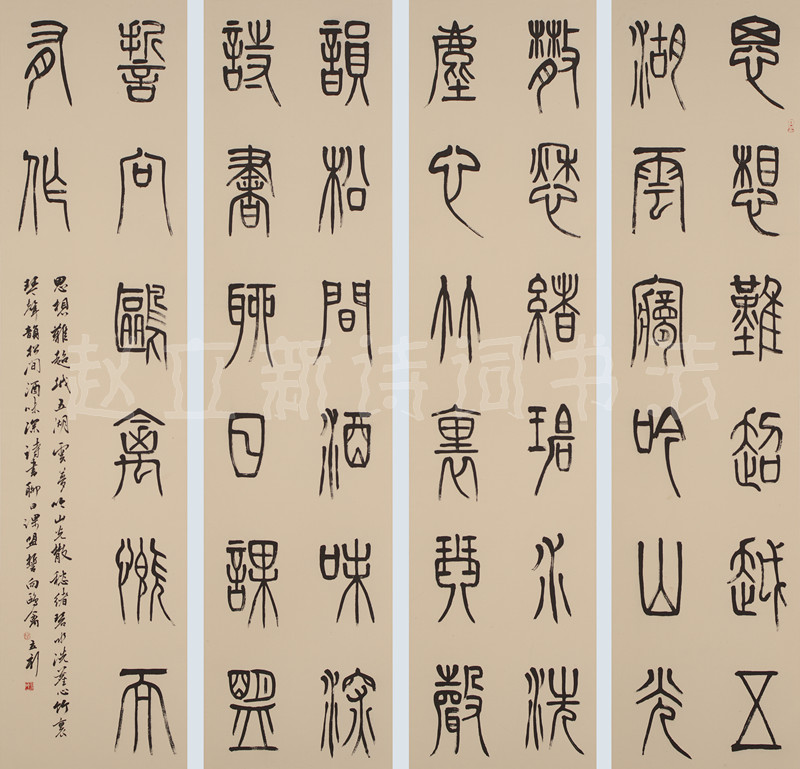 思想難超越五
湖雲夢吟山光
散愁緒碧水洗
塵心竹裏琴聲
韻松間酒味深
詩書聊日課盟
誓向鷗禽慨而
有作
思想難超越五湖雲夢吟山光散愁緒碧水洗塵心竹裏
琴聲韻松間酒味深詩書聊日課盟誓向鷗禽 立新
赵立新诗词书法